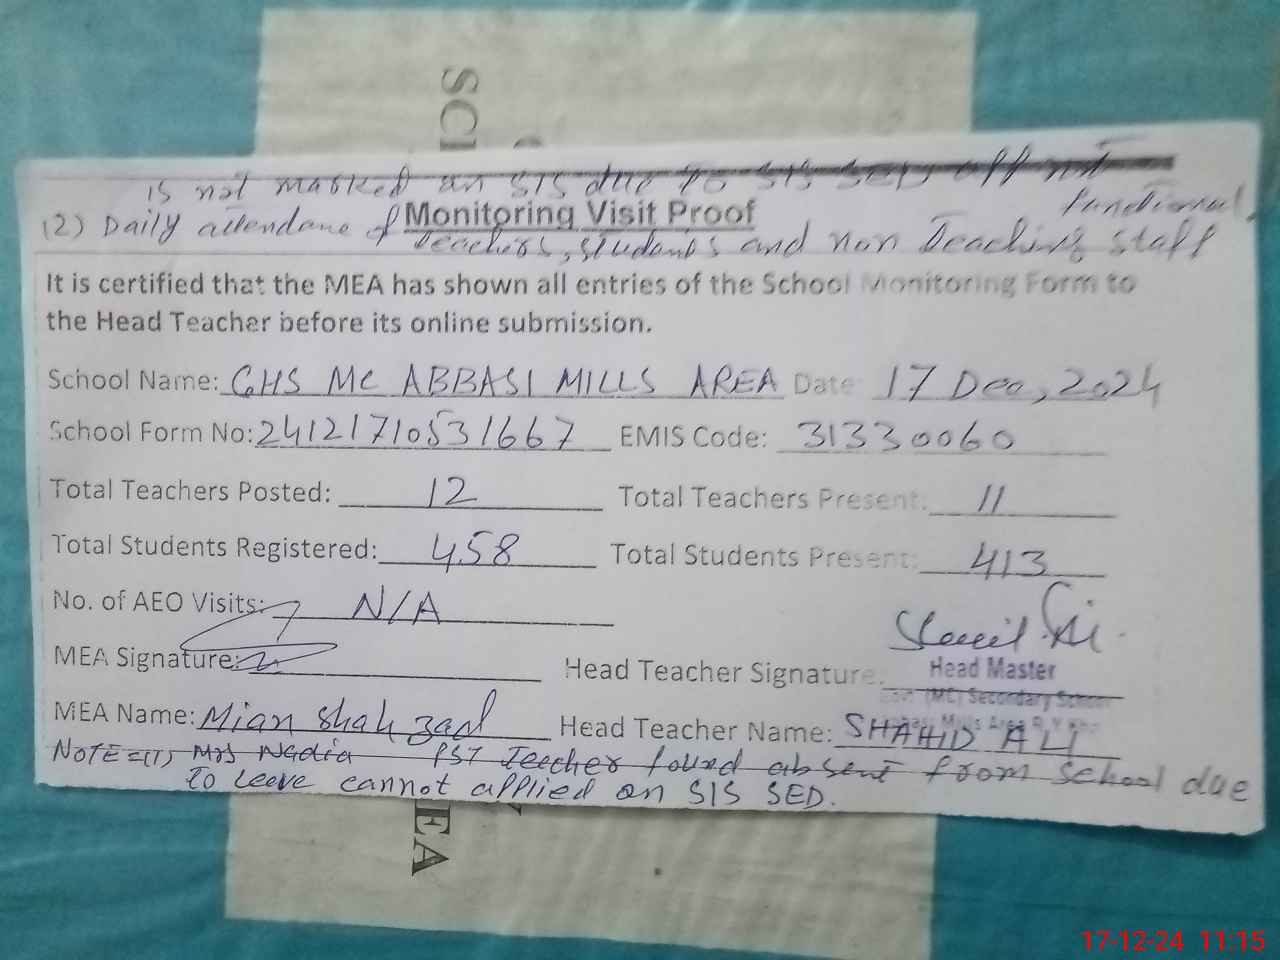 SCI
is not marked on SIS due to SIS SED app not
functional.
(2) Daily attendane of Teachers, students and non Teaching staff
Monitoring Visit Proof
It is certified that the MEA has shown all entries of the School Monitoring Form to
the Head Teacher before its online submission.
School Name: GHS MC ABBASI MILLS AREA Date: 17 Dec, 2024
School Form No: 24121710531667 EMIS Code: 31330060
Total Teachers Posted: 12 Total Teachers Present: 11
Total Students Registered: 458 Total Students Present: 413
No. of AEO Visits: N/A
MEA Signature: Head Teacher Signature:
Head Master
Govt. (MC) Secondary School
Abbasi Mills Area R.Y.Khan
MEA Name: Mian Shahzad Head Teacher Name: SHAHID ALI
NOTE=(1) Mrs Nadia PST Teecher found absent from school due
To leave cannot applied on SIS SED.
EA
17-12-24 11:15